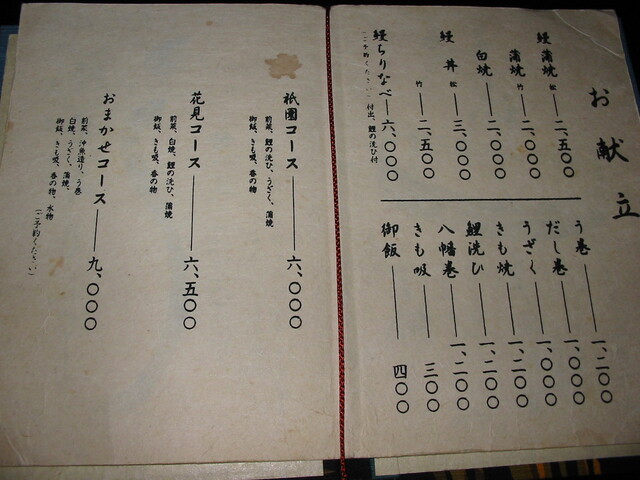 お献立
鰻蒲焼 松 二、五〇〇
蒲焼 竹 二、〇〇〇
白焼 二、〇〇〇
鰻丼 松 三、〇〇〇
竹 二、五〇〇
鰻ちりなべ 六、〇〇〇
(ご予約ください) 付出、鯉の洗ひ付
う巻 一、二〇〇
だし巻 一、〇〇〇
うざく 一、〇〇〇
きも焼 一、二〇〇
鯉洗ひ 一、二〇〇
八幡巻 一、二〇〇
きも吸 三〇〇
御飯 四〇〇
祇園コース 六、〇〇〇
前菜、鯉の洗ひ、うざく、蒲焼
御飯、きも吸、香の物
花見コース 六、五〇〇
前菜、白焼、鯉の洗ひ、蒲焼
御飯、きも吸、香の物
おまかせコース 九、〇〇〇
前菜、沖魚造り、う巻
白焼、うざく、蒲焼、
御飯、きも吸、香の物、水物
(ご予約ください)